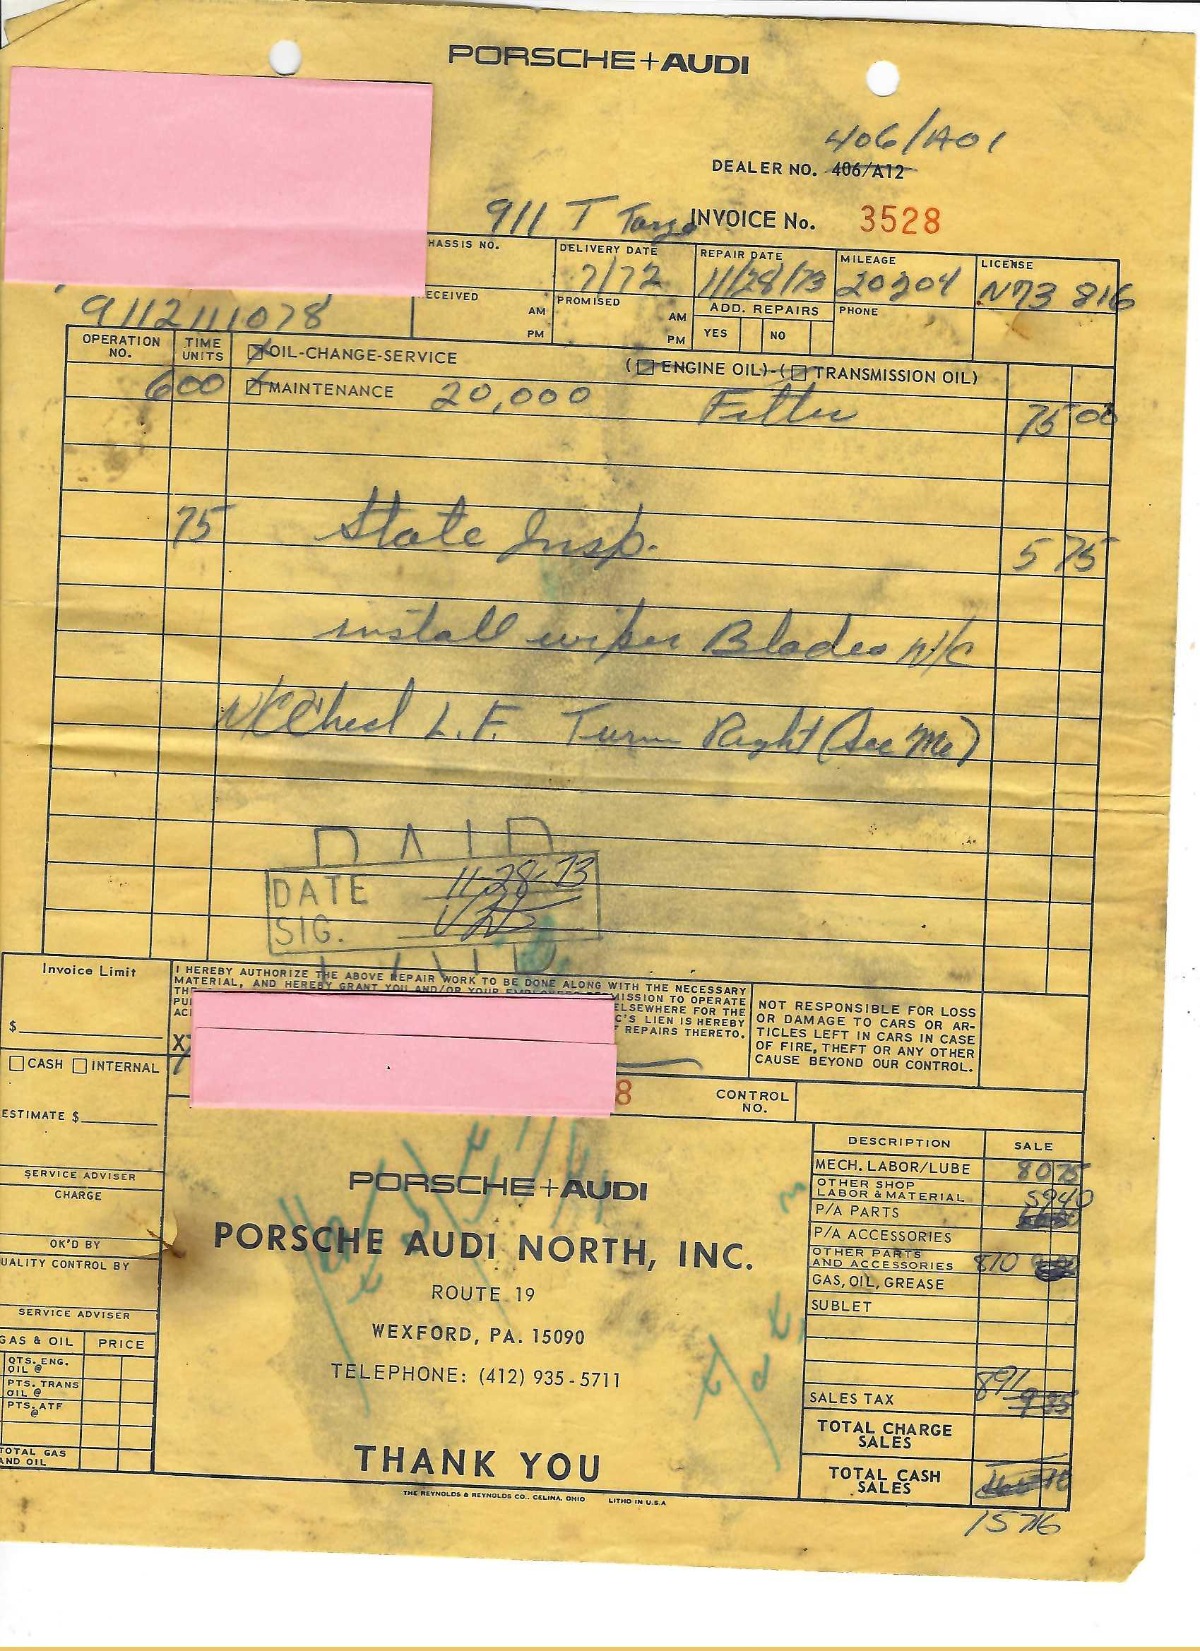 PORSCHE+AUDI
406/A01
DEALER NO. 406/A12
911 T Targa
INVOICE No. 3528
HASSIS NO.
DELIVERY DATE 7/72
REPAIR DATE 11/28/73
MILEAGE 20204
LICENSE N73 816
9112111078
ECEIVED AM PM
PROMISED AM PM
ADD. REPAIRS YES NO
PHONE
OPERATION NO.
TIME UNITS
OIL-CHANGE-SERVICE ( ENGINE OIL)-( TRANSMISSION OIL)
600 MAINTENANCE 20,000 Filter 75 00
75 State Insp. 5 75
install wiper Blades N/C
N/C Check L.F. Turn Right (See Me)
PAID
DATE 11-28-73
SIG.
Invoice Limit
$
CASH INTERNAL
ESTIMATE $
SERVICE ADVISER
CHARGE
OK'D BY
UALITY CONTROL BY
SERVICE ADVISER
GAS & OIL PRICE
QTS. ENG. OIL @
PTS. TRANS OIL @
PTS. ATF @
TOTAL GAS
AND OIL
I HEREBY AUTHORIZE THE ABOVE REPAIR WORK TO BE DONE ALONG WITH THE NECESSARY
MATERIAL, AND HEREBY GRANT YOU AND/OR YOUR EMPLOYEES PERMISSION TO OPERATE
TH
ELSEWHERE FOR THE
PU
C'S LIEN IS HEREBY
ACI
T REPAIRS THERETO.
X
NOT RESPONSIBLE FOR LOSS
OR DAMAGE TO CARS OR AR-
TICLES LEFT IN CARS IN CASE
OF FIRE, THEFT OR ANY OTHER
CAUSE BEYOND OUR CONTROL.
8
CONTROL NO.
PORSCHE+AUDI
PORSCHE AUDI NORTH, INC.
ROUTE 19
WEXFORD, PA. 15090
TELEPHONE: (412) 935-5711
THANK YOU
THE REYNOLDS & REYNOLDS CO., CELINA, OHIO LITHO IN U.S.A
DESCRIPTION SALE
MECH. LABOR/LUBE 80 75
OTHER SHOP LABOR & MATERIAL 59 40
P/A PARTS
P/A ACCESSORIES
OTHER PARTS AND ACCESSORIES 8 10
GAS, OIL, GREASE
SUBLET
SALES TAX 8 91
TOTAL CHARGE SALES
TOTAL CASH SALES
157 16